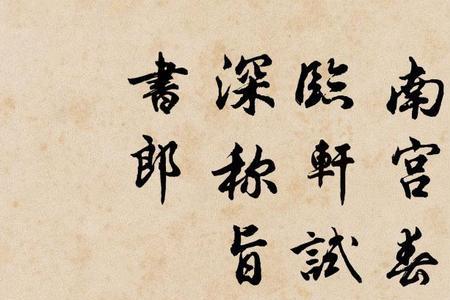 南宮春
臨軒試
深称旨
書郎